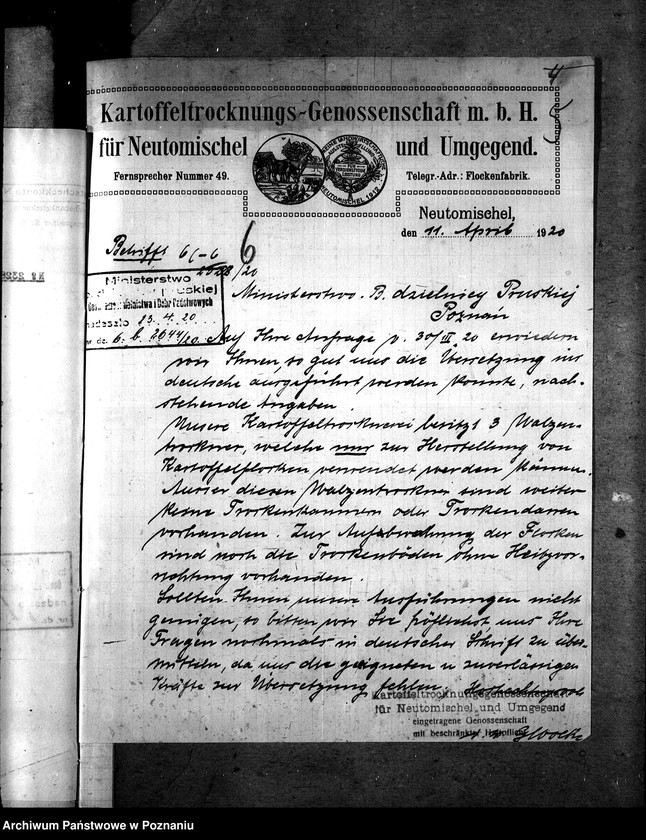 4
Kartoffeltrocknungs-Genossenschaft m. b. H.
für Neutomischel und Umgegend.
Fernsprecher Nummer 49. Telegr.-Adr.: Flockenfabrik.
NEUTOMISCHEL 1912
Neutomischel,
den 11. April 1920
Betrifft 6/-6 6
/20
Ministerstwo
Pruskiej
Rolnictwa i Dóbr Państwowych
13. 4. 20.
6. b. 2644/20
Ministerstwo. B. dzielnicy Pruskiej
Poznań
Auf Ihre Anfrage v. 30/III. 20 erwiedern
wir Ihnen, so gut uns die Übersetzung ins
deutsche ausgeführt werden konnte, nach-
stehende Angaben.
Unsere Kartoffeltrocknerei besitzt 3 Walzen-
trockner, welche nur zur Herstellung von
Kartoffelflocken verwendet werden können.
Ausser diesen Walzentrockner sind weiter
keine Trockenkammern oder Trockendarren
vorhanden. Zur Aufbewahrung der Flocken
sind noch die Trockenböden ohne Heitzvor-
richtung vorhanden.
Sollten Ihnen unsere Ausführungen nicht
genügen, so bitten wir Sie höflichst uns Ihre
Fragen nochmals in deutscher Schrift zu über-
mitteln, da uns die geeigneten u zuverlässigen
Kräfte zur Übersetzung fehlen.
Kartoffeltrocknungsgenossenschaft
für Neutomischel und Umgegend
eingetragene Genossenschaft
mit beschränkter Haftpflicht
Archiwum Państwowe w Poznaniu